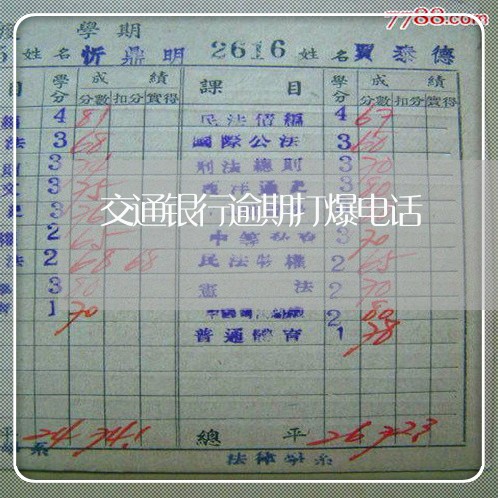 7788.com
學期
姓名忻鼎明 2616 姓名賈泰德
目 學分 成績 課目 學分 成績
分數 扣分 實得 分數 扣分 實得
4 81 民法債編 4 67
法 3 68 國際公法 3 60
3 刑法總則 3 70
文 3 75 3 80
交通银行逾期打爆电话
權 2 65 3 70
法 2 68 68 民法物權 2 65
3 80 憲法 2 70
1 70 2 80
普通體育 1 78
平 24 74.1 總平 26 72.3
系 法律學系